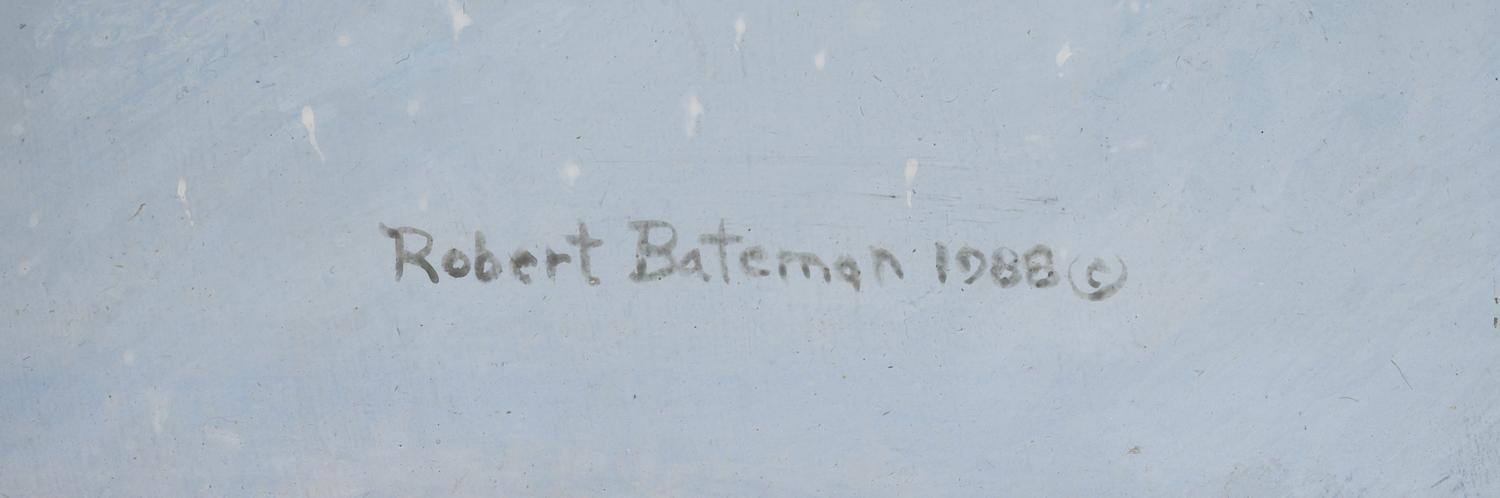 Robert Bateman 1988 ©